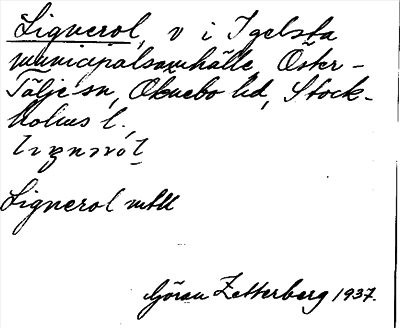 Lignerol, v i Igelsta
municipalsamhälle, Öster-
Tälje sn, Öknebo hd, Stock-
holms l.
Lignerol mtbl
Göran Zetterberg 1937.